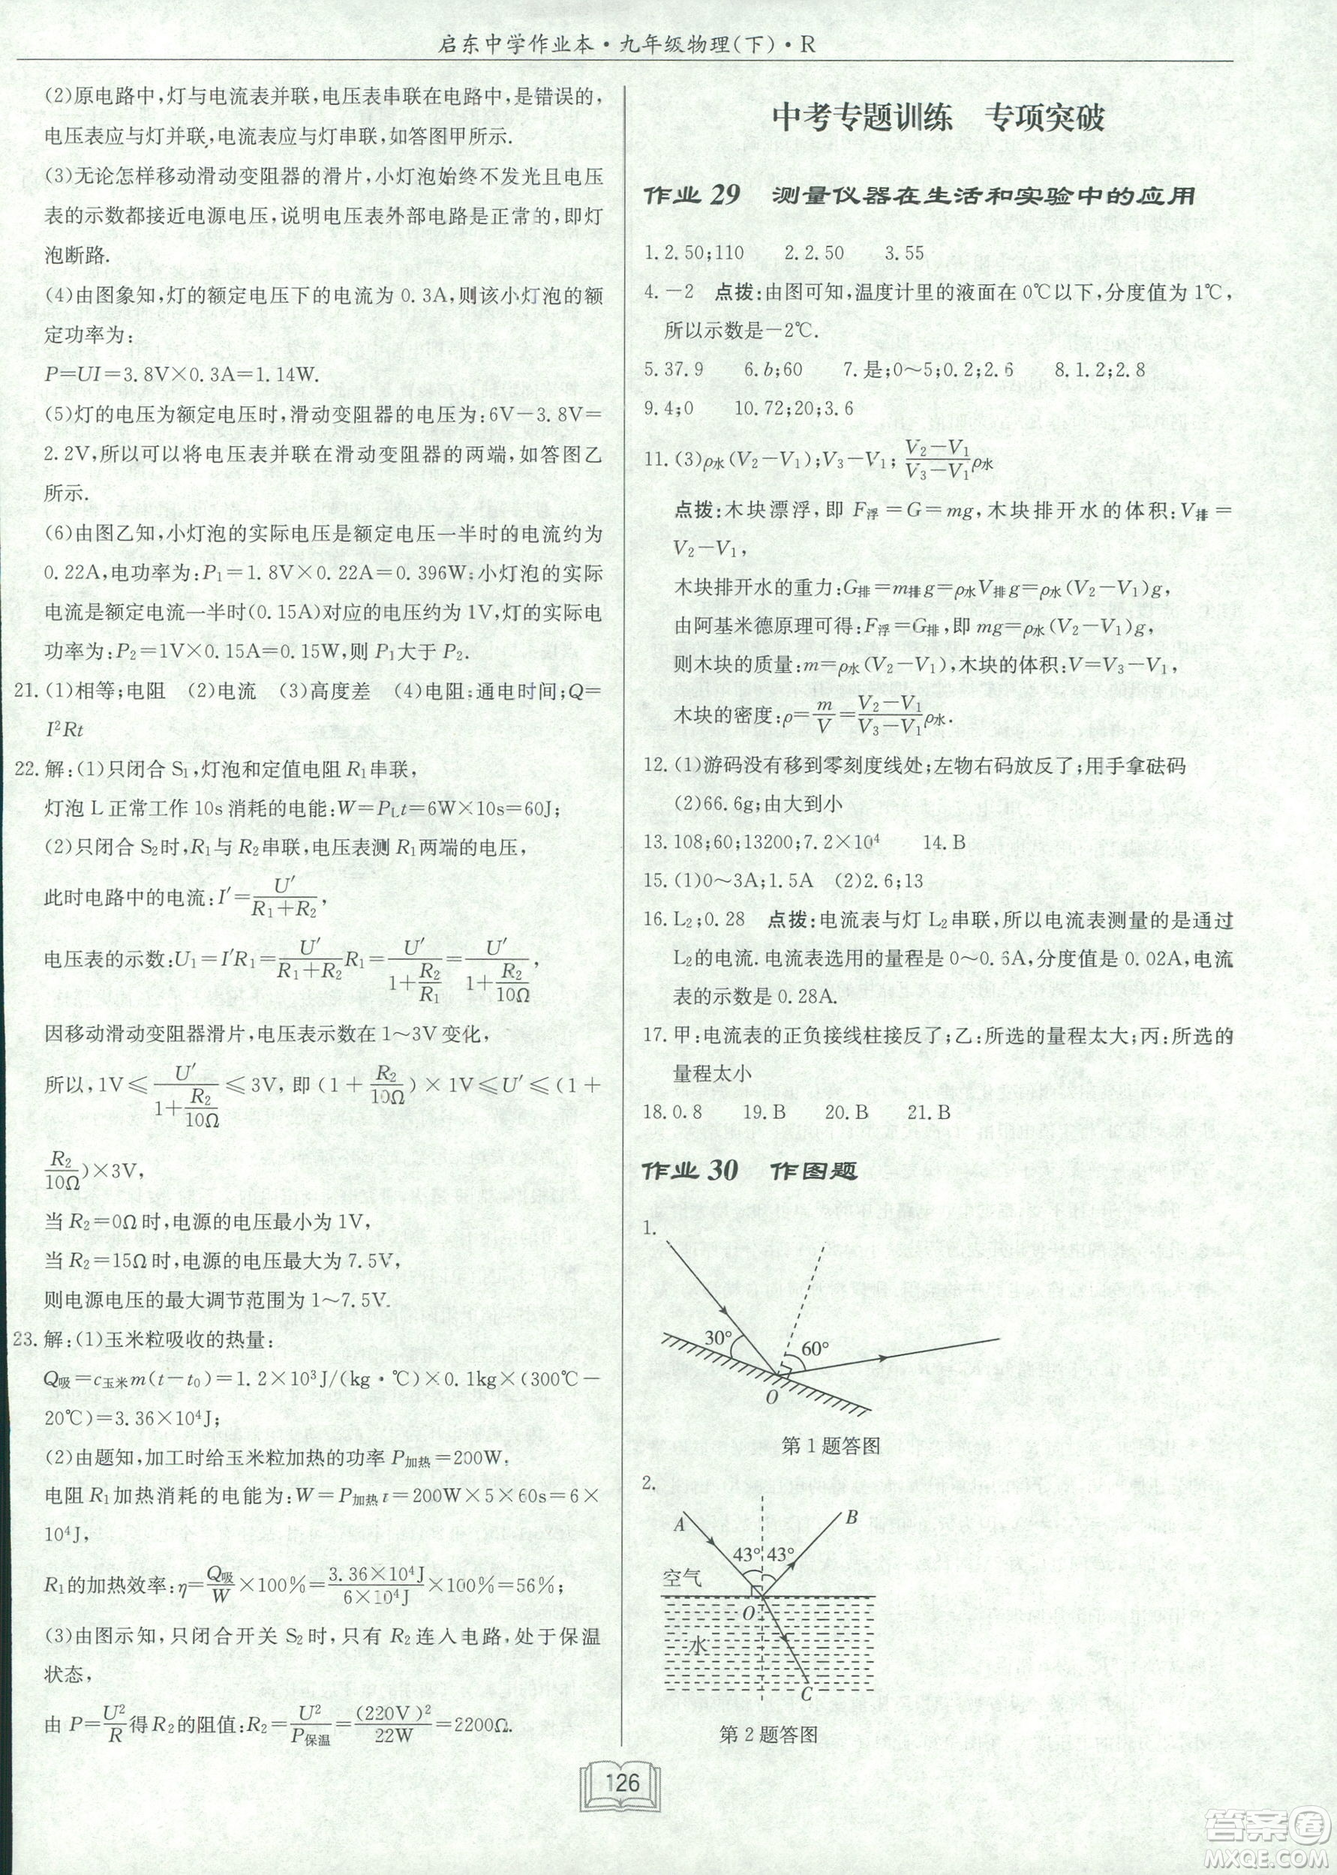 启东中学作业本·九年级物理(下)·R
(2)原电路中,灯与电流表并联,电压表串联在电路中,是错误的,
电压表应与灯并联,电流表应与灯串联,如答图甲所示.
(3)无论怎样移动滑动变阻器的滑片,小灯泡始终不发光且电压
表的示数都接近电源电压,说明电压表外部电路是正常的,即灯
泡断路.
(4)由图象知,灯的额定电压下的电流为 0.3A,则该小灯泡的额
定功率为:
P=UI=3.8V×0.3A=1.14W.
(5)灯的电压为额定电压时,滑动变阻器的电压为:6V-3.8V=
2.2V,所以可以将电压表并联在滑动变阻器的两端,如答图乙
所示.
(6)由图乙知,小灯泡的实际电压是额定电压一半时的电流约为
0.22A,电功率为:P₁=1.8V×0.22A=0.396W;小灯泡的实际
电流是额定电流一半时(0.15A)对应的电压约为1V,灯的实际电
功率为:P₂=1V×0.15A=0.15W,则 P₁大于 P₂.
21.(1)相等;电阻 (2)电流 (3)高度差 (4)电阻;通电时间;Q=
I²Rt
22.解:(1)只闭合 S₁,灯泡和定值电阻 R₁串联,
灯泡 L 正常工作 10s 消耗的电能:W=P_Lt=6W×10s=60J;
(2)只闭合 S₂时,R₁与 R₂串联,电压表测 R₁两端的电压,
此时电路中的电流:I′=U′/(R₁+R₂),
电压表的示数:U₁=I′R₁=U′/(R₁+R₂)R₁=U′/(1+R₂/R₁)=U′/(1+R₂/10Ω),
因移动滑动变阻器滑片,电压表示数在 1～3V 变化,
所以,1V≤U′/(1+R₂/10Ω)≤3V,即(1+R₂/10Ω)×1V≤U′≤(1+
R₂/10Ω)×3V,
当 R₂=0Ω 时,电源的电压最小为 1V,
当 R₂=15Ω 时,电源的电压最大为 7.5V,
则电源电压的最大调节范围为 1～7.5V.
23.解:(1)玉米粒吸收的热量:
Q吸=c玉米m(t-t₀)=1.2×10³J/(kg·℃)×0.1kg×(300℃-
20℃)=3.36×10⁴J;
(2)由题知,加工时给玉米粒加热的功率 P加热=200W,
电阻 R₁加热消耗的电能为:W=P加热t=200W×5×60s=6×
10⁴J,
R₁的加热效率:η=Q吸/W×100%=3.36×10⁴J/6×10⁴J×100%=56%;
(3)由图示知,只闭合开关 S₂时,只有 R₂连入电路,处于保温
状态,
由 P=U²/R得 R₂的阻值:R₂=U²/P保温=(220V)²/22W=2200Ω.
中考专题训练 专项突破
作业 29 测量仪器在生活和实验中的应用
1.2.50;110 2.2.50 3.55
4.-2 点拨:由图可知,温度计里的液面在 0℃以下,分度值为 1℃,
所以示数是-2℃.
5.37.9 6.b;60 7.是;0～5;0.2;2.6 8.1.2;2.8
9.4;0 10.72;20;3.6
11.(3)ρ水(V₂-V₁);V₃-V₁;(V₂-V₁)/(V₃-V₁)ρ水
点拨:木块漂浮,即 F浮=G=mg,木块排开水的体积:V排=
V₂-V₁,
木块排开水的重力:G排=m排g=ρ水V排g=ρ水(V₂-V₁)g,
由阿基米德原理可得:F浮=G排,即 mg=ρ水(V₂-V₁)g,
则木块的质量:m=ρ水(V₂-V₁),木块的体积:V=V₃-V₁,
木块的密度:ρ=m/V=(V₂-V₁)/(V₃-V₁)ρ水.
12.(1)游码没有移到零刻度线处;左物右码放反了;用手拿砝码
(2)66.6g;由大到小
13.108;60;13200;7.2×10⁴ 14.B
15.(1)0～3A;1.5A (2)2.6;13
16.L₂;0.28 点拨:电流表与灯 L₂串联,所以电流表测量的是通过
L₂的电流.电流表选用的量程是 0～0.6A,分度值是 0.02A,电流
表的示数是 0.28A.
17.甲:电流表的正负接线柱接反了;乙:所选的量程太大;丙:所选的
量程太小
18.0.8 19.B 20.B 21.B
作业 30 作图题
1.
30° 60°
O
第 1 题答图
2.
A B
43° 43°
空气
O
水
C
第 2 题答图
126
答案圈
MXQE.COM